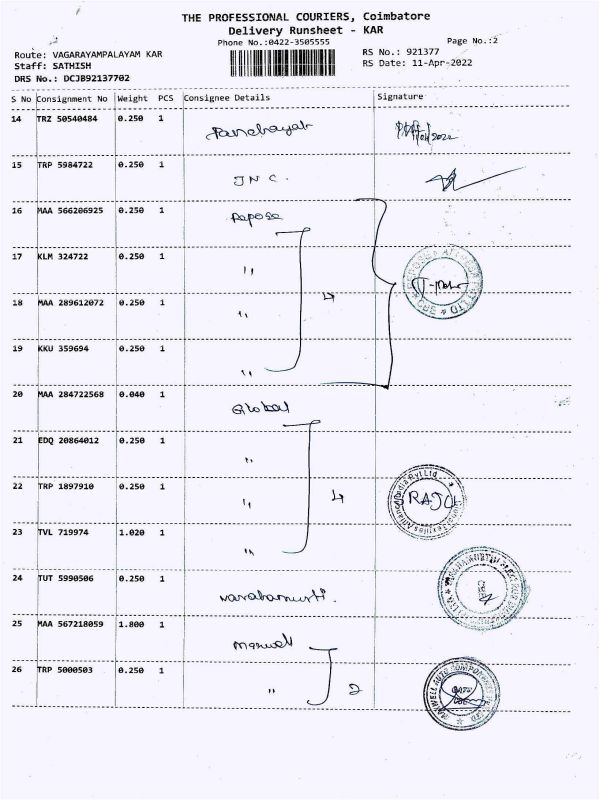 THE PROFESSIONAL COURIERS, Coimbatore
Delivery Runsheet - KAR
Phone No.:0422-3505555
Page No.:2
Route: VAGARAYAMPALAYAM KAR
RS No.: 921377
Staff: SATHISH
RS Date: 11-Apr-2022
DRS No.: DCJB92137702
S No Consignment No Weight PCS Consignee Details Signature
14 TRZ 50540484 0.250 1
15 TRP 5984722 0.250 1 JNC.
16 MAA 566206925 0.250 1 Repose
17 KLM 324722 0.250 1 ,,
18 MAA 289612072 0.250 1 ,, 4
19 KKU 359694 0.250 1 ,,
20 MAA 284722568 0.040 1 Global
21 EDQ 20864012 0.250 1 ,,
22 TRP 1897910 0.250 1 ,, 4 RAJU
23 TVL 719974 1.020 1 ,,
24 TUT 5990506 0.250 1 varahamurti.
25 MAA 567218059 1.800 1 maxwell
26 TRP 5000503 0.250 1 ,, 2